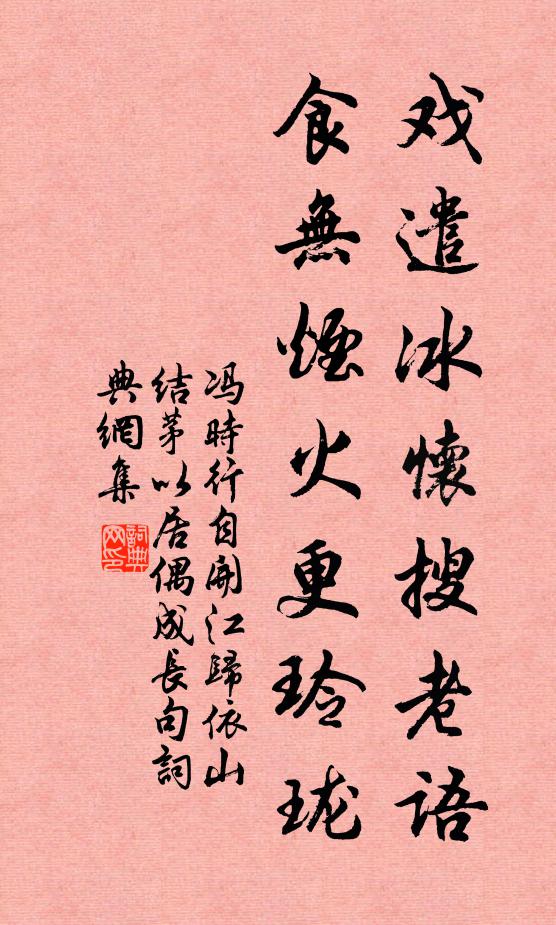 戏遣冰懷搜老语
食無煙火更玲珑
冯時行自開江歸依山
结茅以居偶成長句詞
典網集
詞典网印